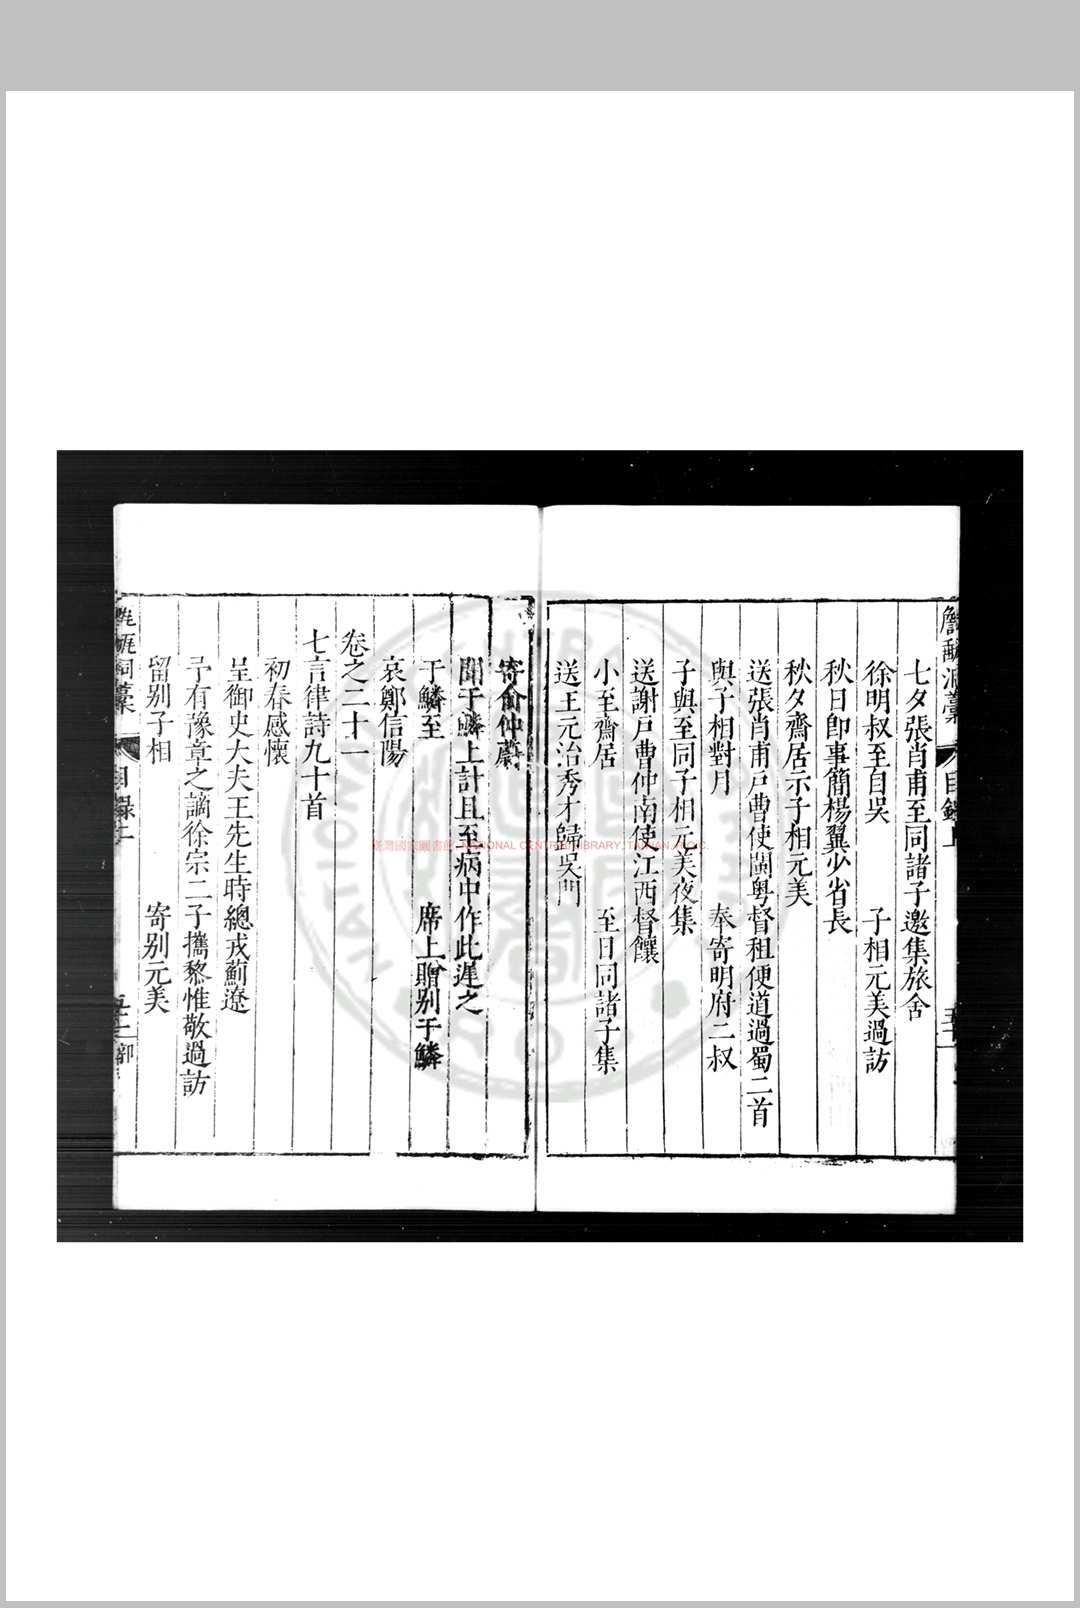 七夕張肖甫至同諸子邀集旅舍
徐明叔至自吳　子相元美過訪
秋日卽事簡楊翼少省長
秋夕齋居示子相元美
送張肖甫戶曹使閩粵督租便道過蜀二首
與子相對月　奉寄明府二叔
子與至同子相元美夜集
送謝戶曹仲南使江西督饟
小至齋居　至日同諸子集
送王元治秀才歸吳門
寄俞仲蔚
聞于鱗上計且至病中作此遲之
于鱗至　席上贈别于鱗
哀鄭信陽
卷之二十一
七言律詩九十首
初春感懷
呈御史大夫王先生時總戎薊遼
予有豫章之謫徐宗二子攜黎惟敬過訪
留别子相　寄别元美
目錄
臺灣國家圖書館, NATIONAL CENTRAL LIBRARY, TAIWAN, R.O.C.